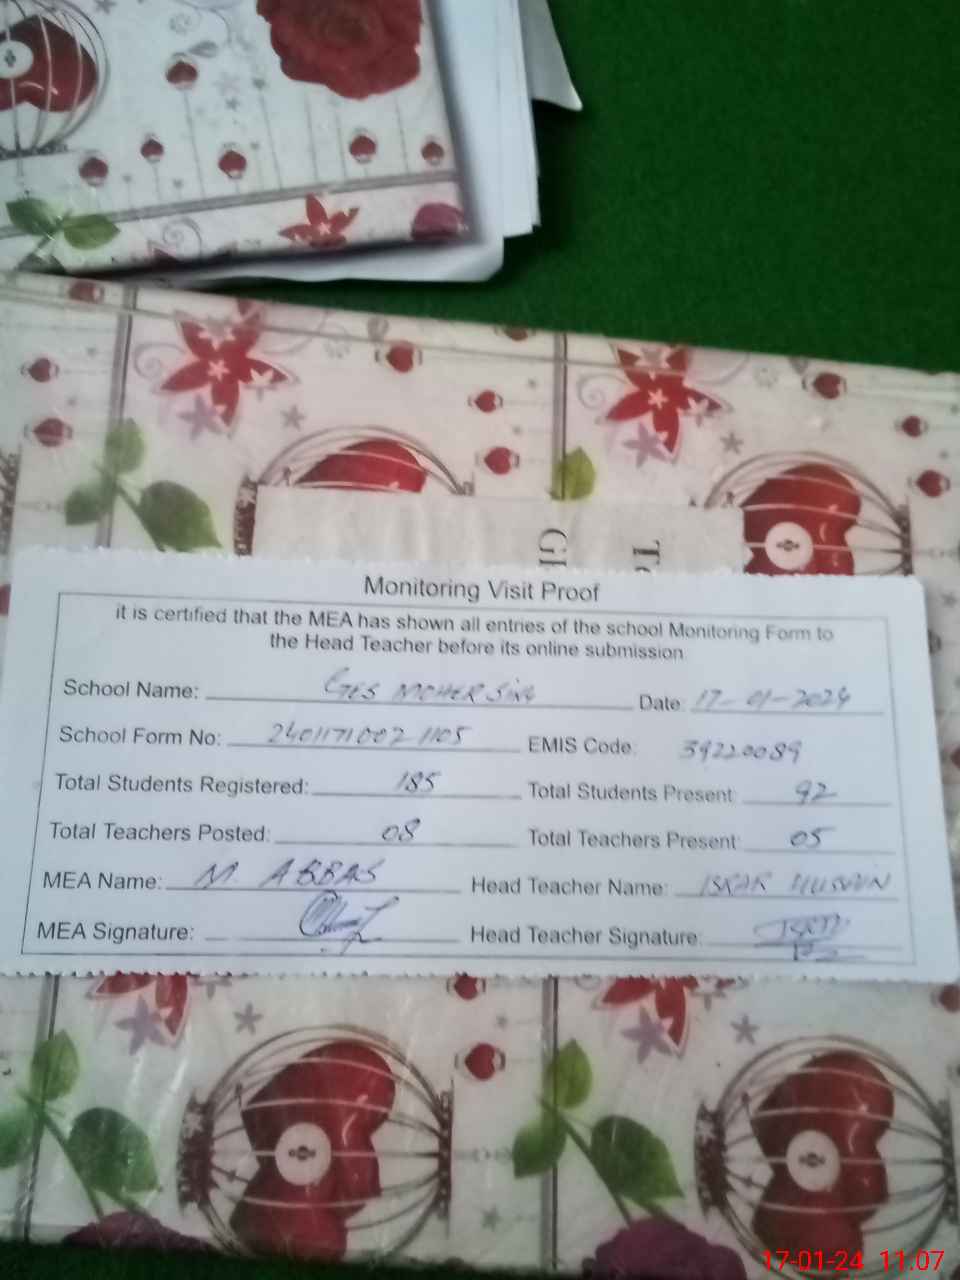 Gl
To
Monitoring Visit Proof
it is certified that the MEA has shown all entries of the school Monitoring Form to
the Head Teacher before its online submission
School Name: GES MOHER SING Date: 17-01-2024
School Form No: 2401171007 1105 EMIS Code: 39220089
Total Students Registered: 185 Total Students Present: 92
Total Teachers Posted: 08 Total Teachers Present: 05
MEA Name: M. ABBAS Head Teacher Name: ISRAR HUSSAIN
MEA Signature: Head Teacher Signature:
17-01-24 11:07